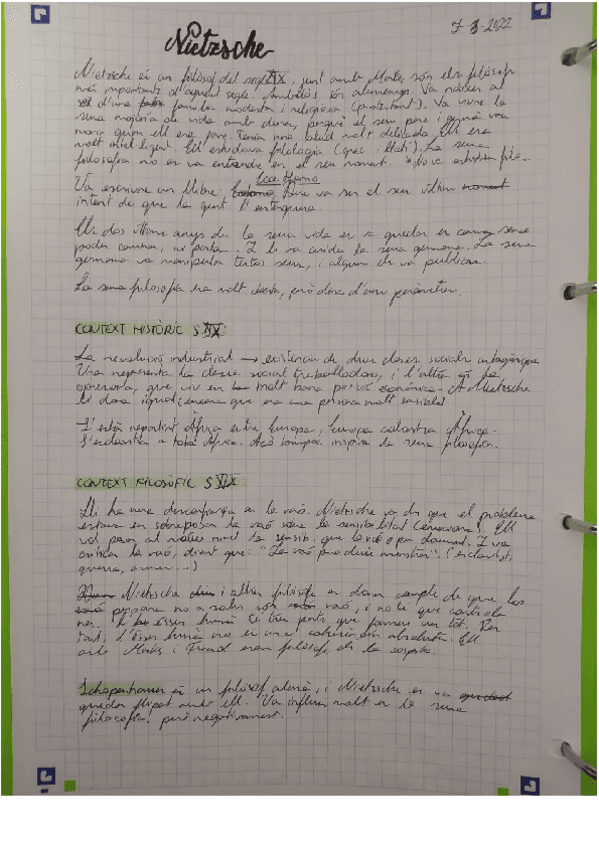 Nietzsche
7-3-2022
Nietzsche és un filòsof del segle XIX, junt amb Marx, són els filòsofs
més importants d'aquest segle. Ambdós són alemanys. Va nàixer al
d'una família modesta i religiosa (protestant). Va viure la
seua majoria de vida amb dones, perquè el seu pare i germà van
morir quan ell era jove. Tenia una salut molt delicada. Ell era
molt intel·ligent. Ell estudiava filologia (grec i llatí). La seua
filosofia no es va entendre en el seu moment.
Ecce Homo
Va escriure un llibre: Que va ser el seu últim moment
intent de que la gent l'entenguera.
Els dos últims anys de la seua vida es va quedar en sense
poder caminar, ni parlar. I li va cuidar la seua germana. La seua
germana va manipular textos seus, i alguns els va publicar.
La seua filosofia era molt però
CONTEXT HISTÒRIC S XIX:
La revolució industrial → existència de dues classes socials antagòniques
Una representa la classe social treballadora, i l'altra és la
que viu en molt bona posició econòmica. A Nietzsche
li dona igual, encara que era una persona molt sensible.
S'està repartint Àfrica entre Europa, Europa colonitza Àfrica.
S'esclavitza a tota Àfrica. Açò tampoc inspira la seua filosofia.
CONTEXT FILOSÒFIC S XIX:
Hi ha una desconfiança en la raó. Nietzsche va dir que el problema
estava en sobreposar la raó sobre la sensibilitat (emocions). Ell
vol posar al mateix nivell la sensib. que la raó o per damunt. I va
criticar la raó, dient que: "La raó produeix monstres". (esclavitut,
guerra, armes...)
Nietzsche i altres filòsofs es donen compte de que les
persones no a soles són raó, i no té que controlar-
nos. L'ésser humà té dos parts que formen un tot. Per
tant, l'ésser humà no és una coherència absoluta. Ell
amb Marx i Freud eren filòsofs de la sospita.
Schopenhauer és un filòsof alemà, i Nietzsche es va quedar
quedar flipat amb ell. Va influir molt en la seua
filosofia, però negativament.